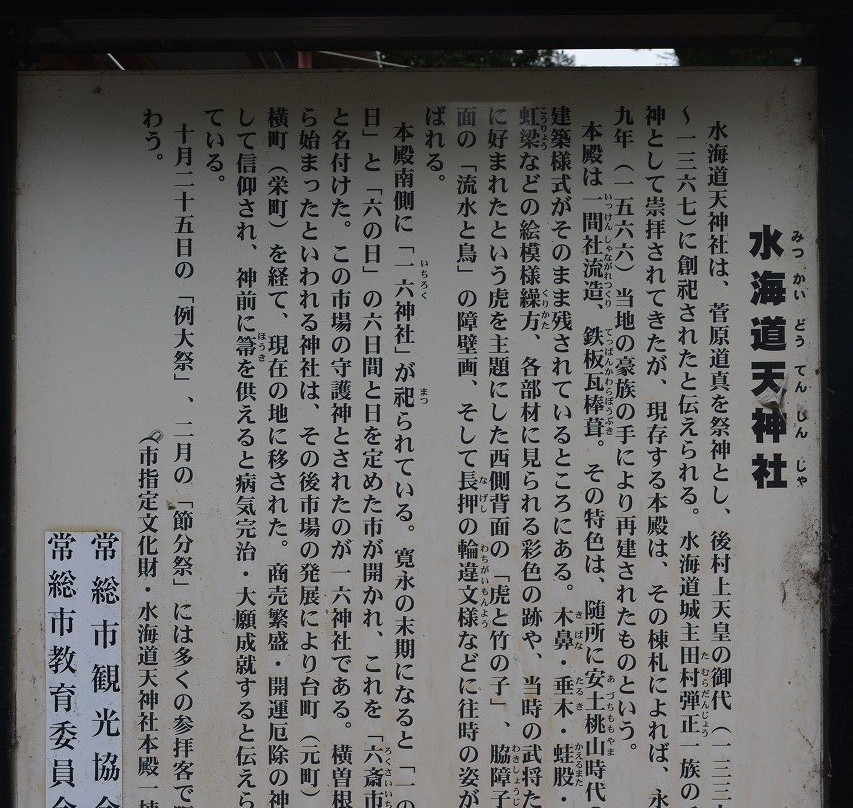 水海道天神社
みつかいどうてんじんじゃ
水海道天神社は、菅原道真を祭神とし、後村上天皇の御代（一三三
～一三六七）に創祀されたと伝えられる。水海道城主田村弾正一族の
たむらだんじょう
神として崇拝されてきたが、現存する本殿は、その棟札によれば、永
九年（一五六六）当地の豪族の手により再建されたものという。
本殿は一間社流造、鉄板瓦棒葺。その特色は、随所に安土桃山時代
いっけんしゃながれつくり
てっぱんかわらぼうぶき
あづちももやま
建築様式がそのまま残されているところにある。木鼻・垂木・蛙股・
きばな
たるき
かえるまた
虹梁などの絵模様繰方、各部材に見られる彩色の跡や、当時の武将た
こうりょう
くりかた
に好まれたという虎を主題にした西側背面の「虎と竹の子」、脇障子
わきしょうじ
面の「流水と鳥」の障壁画、そして長押の輪違文様などに往時の姿が
なげし
わちがいもんよう
ばれる。
本殿南側に「一六神社」が祀られている。寛永の末期になると「一の
いちろく
まつ
日」と「六の日」の六日間と日を定めた市が開かれ、これを「六斎市
ろくさいいち
と名付けた。この市場の守護神とされたのが一六神社である。横曽根
ら始まったといわれる神社は、その後市場の発展により台町（元町）
横町（栄町）を経て、現在の地に移された。商売繁盛・開運厄除の神
して信仰され、神前に箒を供えると病気完治・大願成就すると伝えら
ほうき
ている。
十月二十五日の「例大祭」、二月の「節分祭」には多くの参拝客で
わう。
（市指定文化財・水海道天神社本殿一棟
常総市観光協会
常総市教育委員会